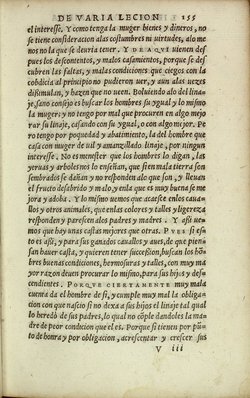 DE VARIA LECION 155
el interesse, Y como tenga la muger bienes y dineros, no
se tiene consideracion alas costumbres ni virtudes, alo me
nos no la que se deuria tener, Y DE AQVI vienen des
pues los descontentos, y malos casamientos, porque se des
cubren las faltas, y malas condiciones que ciegos con la
cobdicia al principio no pudieron ver, y aun alas vezes
dissimulan, y hazen que no veen. Boluiendo alo del lina
je, sano consejo es buscar los hombres su ygual y lo mismo
la muger: y no tengo por mal que procuren en algo mejo
rar su linaje, casando con su ygual, o con algo mejor. Pe
ro tengo por poquedad y abatimiento, la del hombre que
casa con muger de vil y amanzillado linaje, por ningun
interesse. No es menester que los hombres lo digan, las
yeruas y arboles nos lo enseñan, que si en mala tierra son
sembrados se dañan y no responden alo que son, y lleuan
el fructo desabrido y malo, y enla que es muy buena se me
jora y adoba. Y lo mismo vemos que acaesce enlos caua-
llos y otros animales, que enlas colores y talles y ligereza
responden y parescen alos padres y madres. Y assi ve-
mos que hay vnas castas mejores que otras. PVES si es-
to es assi, y para sus ganados cauallos y aues, que de pien-
san hazer casta, y quieren tener succession, buscan los hō-
bres buenas condiciones, hermosuras y talles, con muy ma
yor razon deuen procurar lo mismo, para sus hijos y des-
cendientes. PORQVE CIERTAMENTE muy mala
cuenta da el hombre de si, y cumple muy mal la obliga-
cion con que nascio si no dexa a sus hijos el linaje tal qual
lo heredo de sus padres, lo qual no cōple dandoles la ma-
dre de peor condicion que el es. Porque si tienen por pū-
to de honra y por obligacion, acrescentar y crescer sus
V iii